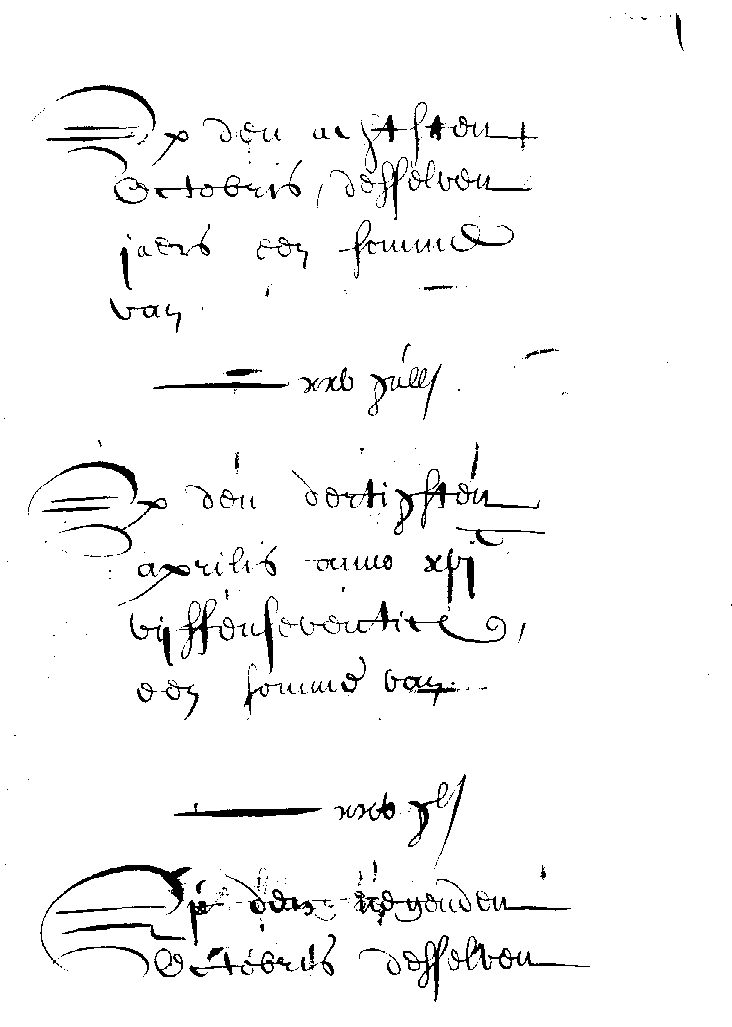 Op den achtsten
Octobris desselven
jaers een somme
van
xxv gull
Op den dertichsten
aprilis anno xvjc
vijffenseventich
een somme van
xxv gl
Op den negenden
Octobris desselven